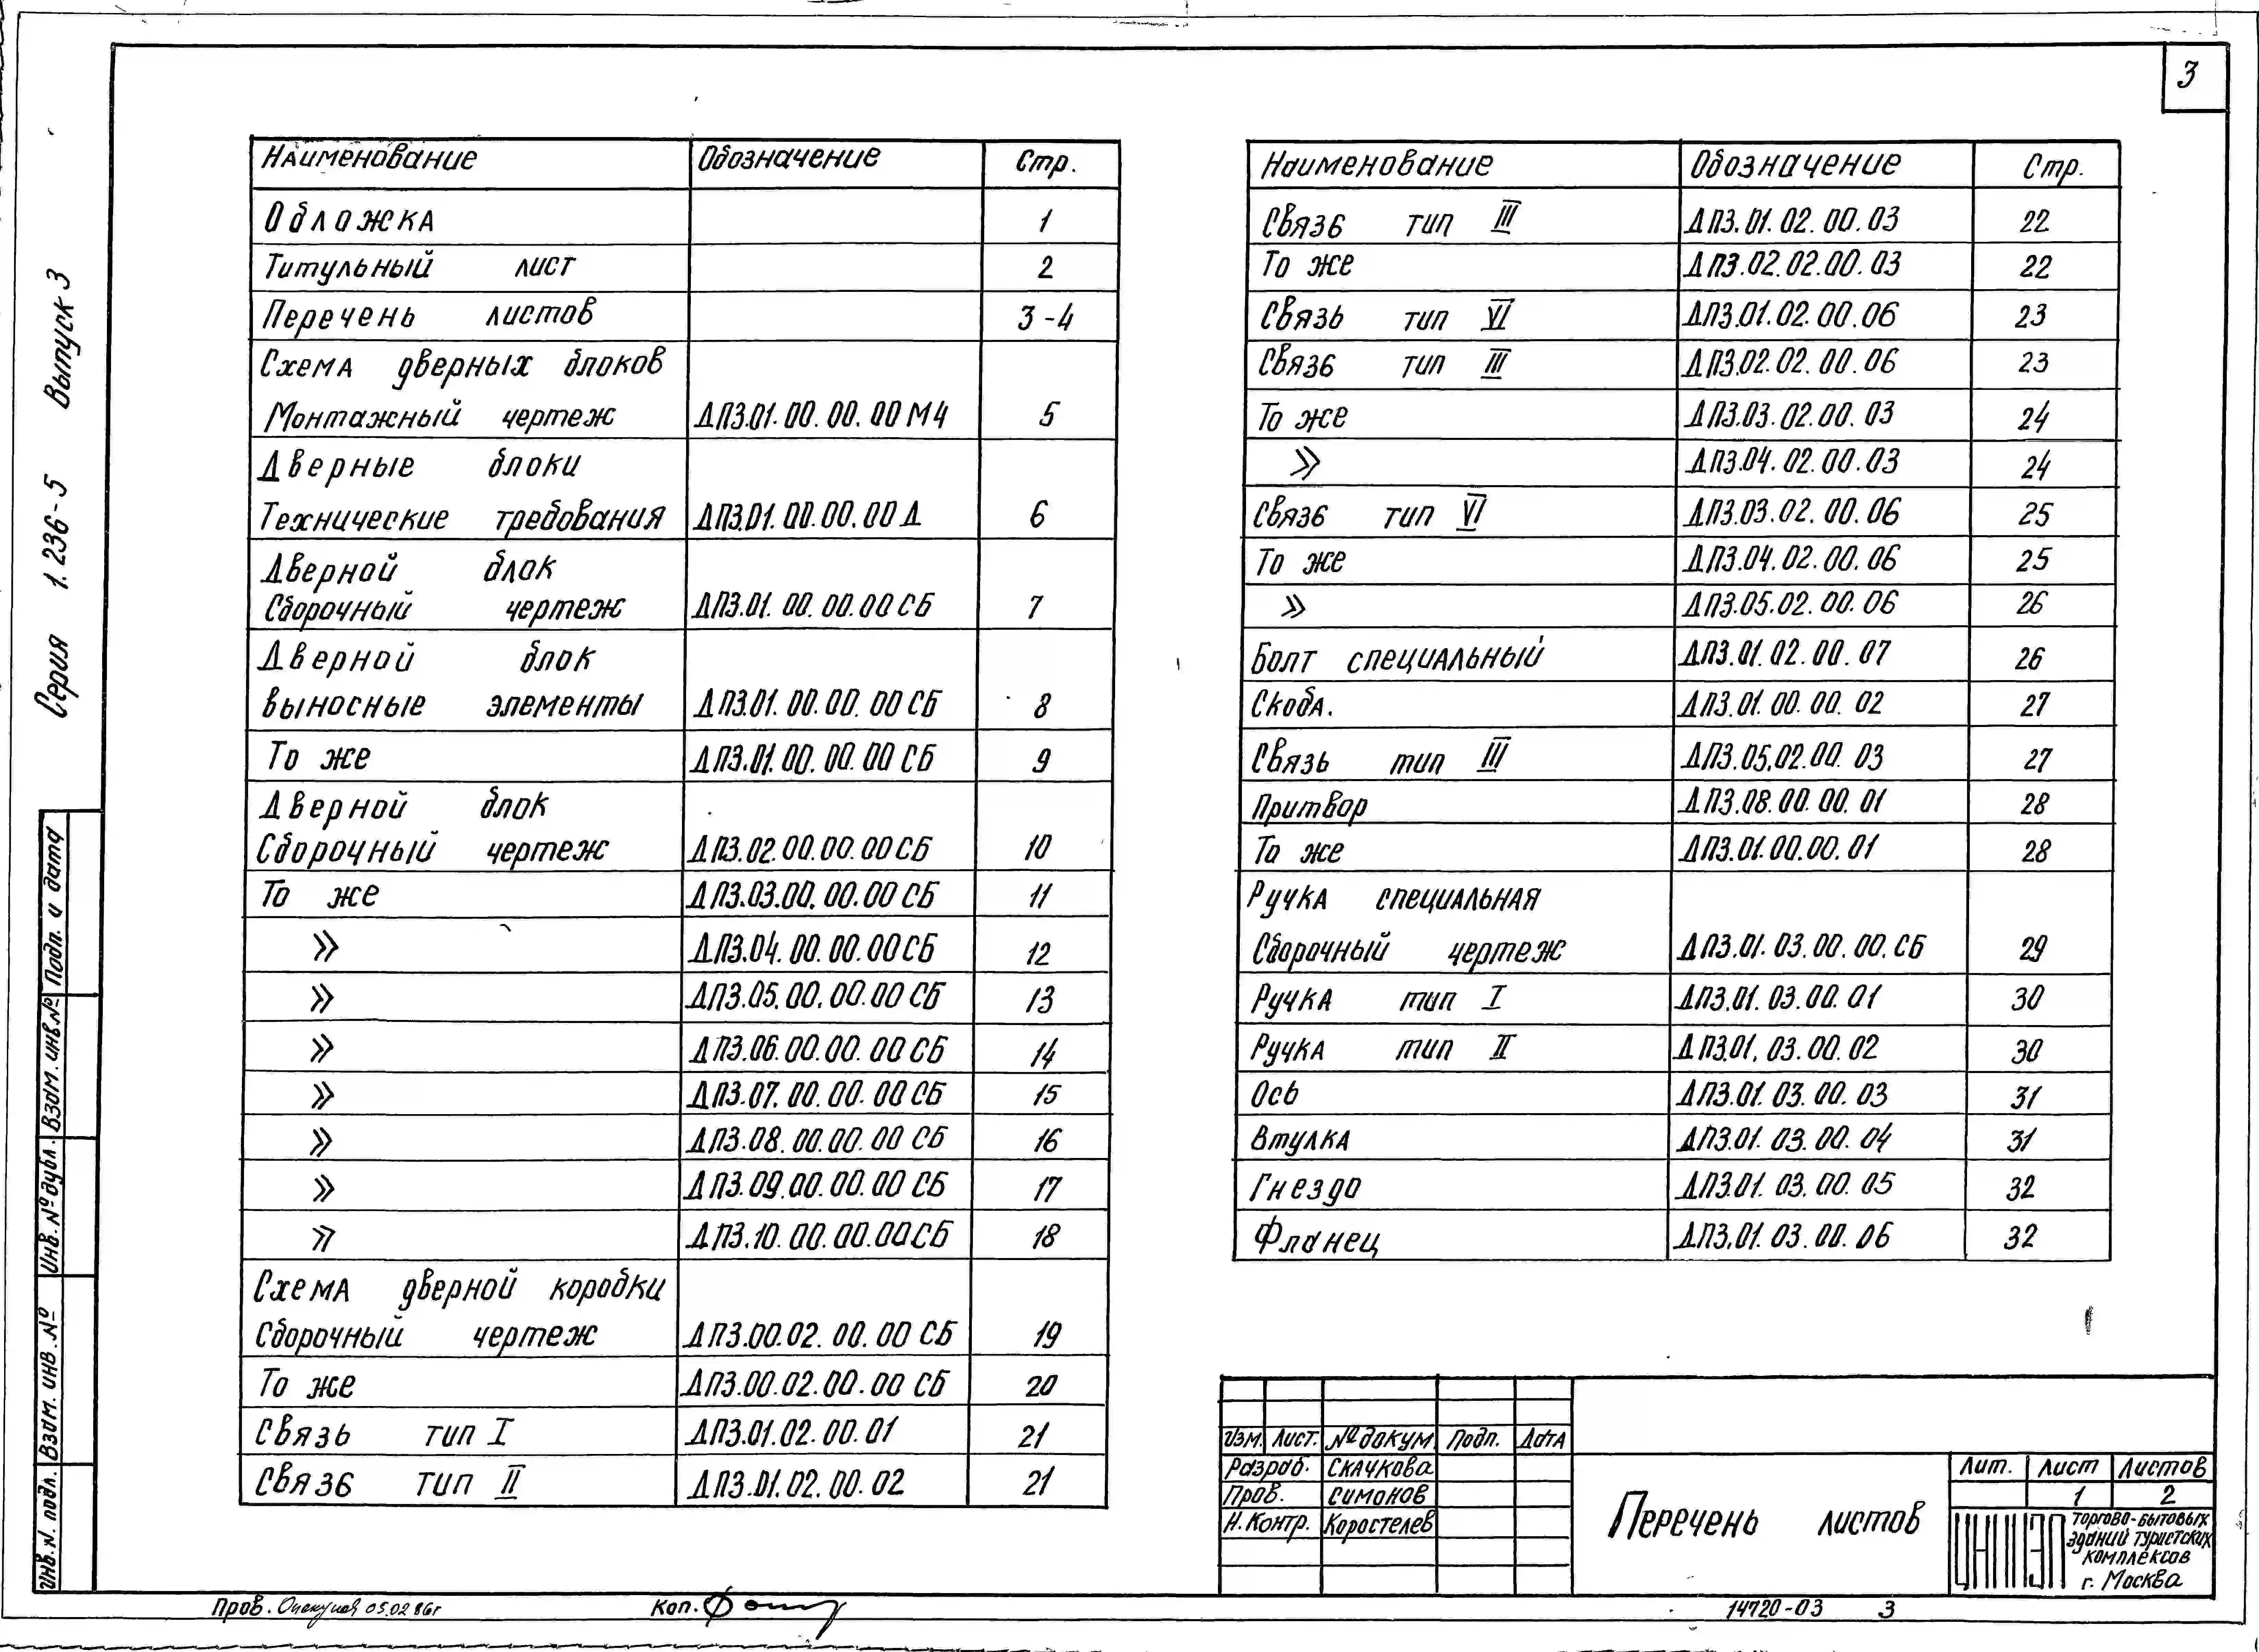 3
Серия 1.236-5 Выпуск 3
Наименование Обозначение Стр.
Обложка 1
Титульный лист 2
Перечень листов 3-4
Схема дверных блоков
Монтажный чертеж ДП3.01.00.00.00 МЧ 5
Дверные блоки
Технические требования ДП3.01.00.00.00 Д 6
Дверной блок
Сборочный чертеж ДП3.01.00.00.00 СБ 7
Дверной блок
выносные элементы ДП3.01.00.00.00 СБ 8
То же ДП3.01.00.00.00 СБ 9
Дверной блок
Сборочный чертеж ДП3.02.00.00.00 СБ 10
То же ДП3.03.00.00.00 СБ 11
» ДП3.04.00.00.00 СБ 12
» ДП3.05.00.00.00 СБ 13
» ДП3.06.00.00.00 СБ 14
» ДП3.07.00.00.00 СБ 15
» ДП3.08.00.00.00 СБ 16
» ДП3.09.00.00.00 СБ 17
» ДП3.10.00.00.00 СБ 18
Схема дверной коробки
Сборочный чертеж ДП3.00.02.00.00 СБ 19
То же ДП3.00.02.00.00 СБ 20
Связь тип I ДП3.01.02.00.01 21
Связь тип II ДП3.01.02.00.02 21
Наименование Обозначение Стр.
Связь тип III ДП3.01.02.00.03 22
То же ДП3.02.02.00.03 22
Связь тип VI ДП3.01.02.00.06 23
Связь тип III ДП3.02.02.00.06 23
То же ДП3.03.02.00.03 24
» ДП3.04.02.00.03 24
Связь тип VI ДП3.03.02.00.06 25
То же ДП3.04.02.00.06 25
» ДП3.05.02.00.06 26
Болт специальный ДП3.01.02.00.07 26
Скоба. ДП3.01.00.00.02 27
Связь тип III ДП3.05.02.00.03 27
Притвор ДП3.08.00.00.01 28
То же ДП3.01.00.00.01 28
Ручка специальная
Сборочный чертеж ДП3.01.03.00.00.СБ 29
Ручка тип I ДП3.01.03.00.01 30
Ручка тип II ДП3.01.03.00.02 30
Ось ДП3.01.03.00.03 31
Втулка ДП3.01.03.00.04 31
Гнездо ДП3.01.03.00.05 32
Фланец ДП3.01.03.00.06 32
Подп. и дата
Взам. инв.№
Инв.№ дубл.
Взам. инв.№
Инв.N. подл.
Изм. Лист. № докум. Подп. Дата
Разраб. Скачкова
Пров. Симонов
Н.Контр. Коростелев
Перечень листов
Лит. Лист Листов
1 2
ЦНИИЭП торгово-бытовых
зданий туристских
комплексов
г. Москва
Пров. 05.02.86г Коп. 14720-03 3